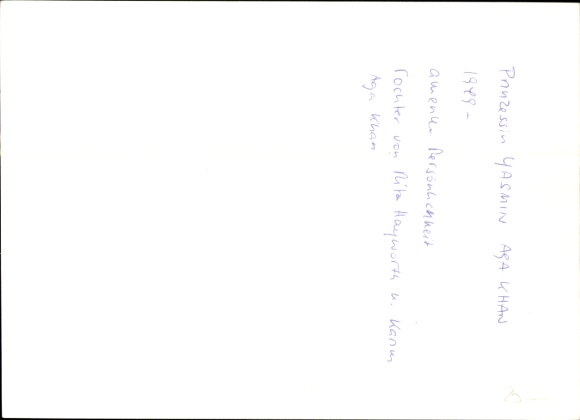 Prinzessin YASMIN AGA KHAN
1949-
amerik. Persönlichkeit
Tochter von Rita Hayworth u. Karim
Aga Khan